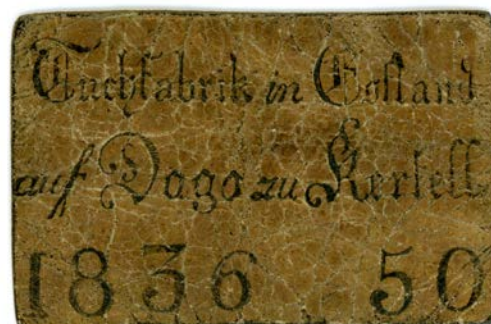 Tuchfabrik in Ehstland
auf Dago zu Kertell
1836 50